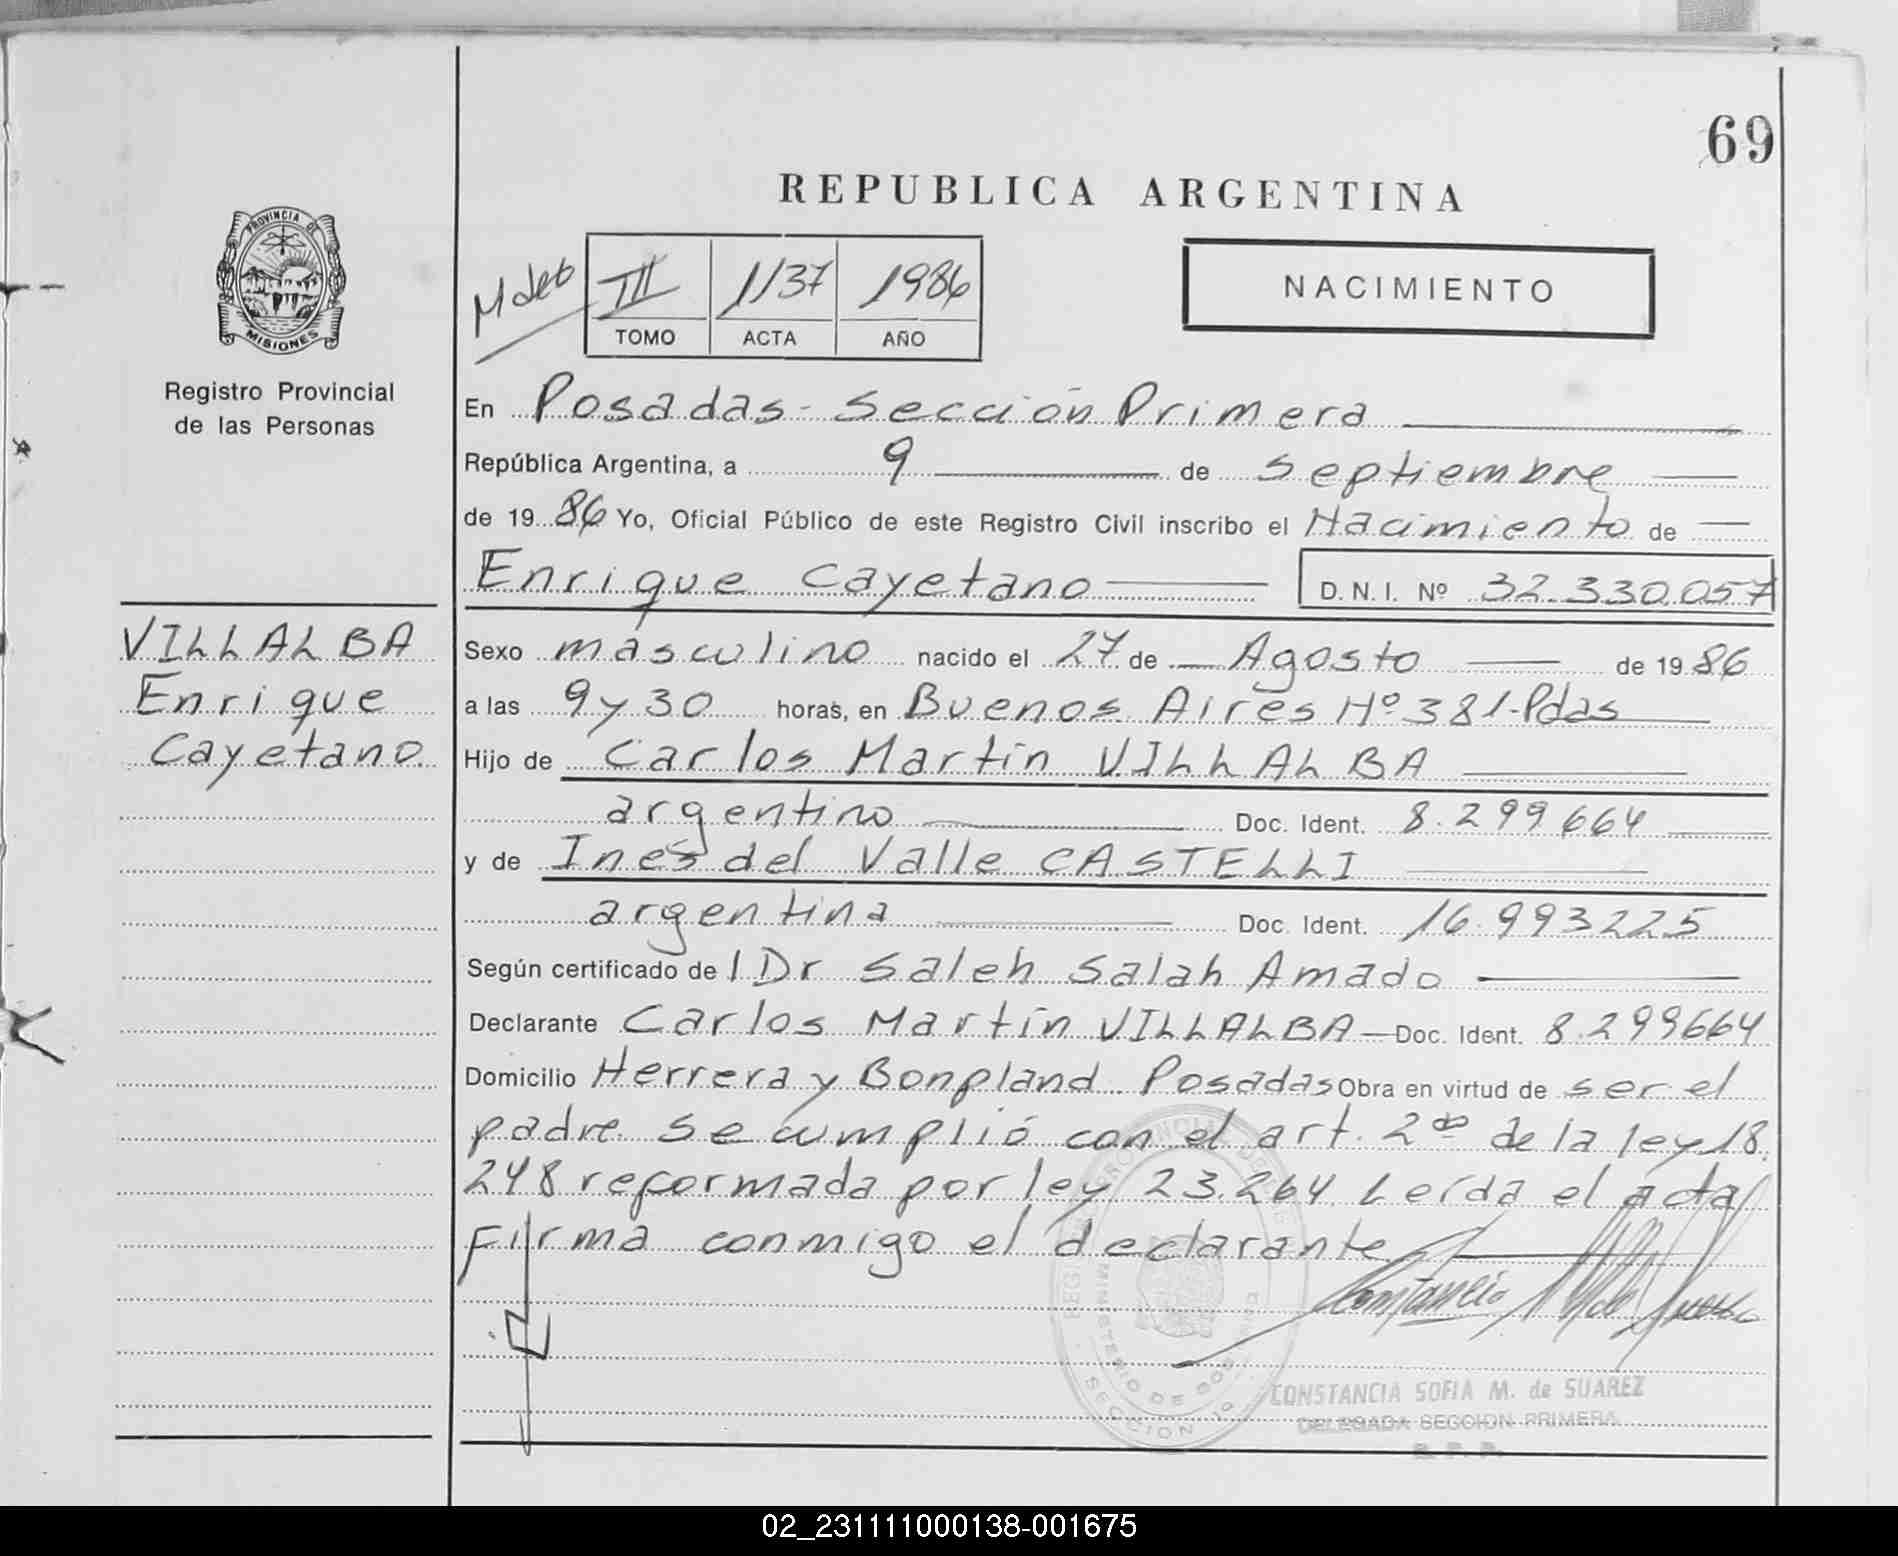 69
REPUBLICA ARGENTINA
PROVINCIA DE
MISIONES
III 1137 1986
TOMO ACTA AÑO
NACIMIENTO
Registro Provincial
de las Personas
En Posadas - Sección Primera
República Argentina, a 9 de septiembre
de 1986 Yo, Oficial Público de este Registro Civil inscribo el Nacimiento de
Enrique Cayetano D.N.I. Nº 32.330.057
VILLALBA
Enrique
Cayetano
Sexo masculino nacido el 27 de Agosto de 1986
a las 9 y 30 horas, en Buenos Aires Nº 381-Pdas
Hijo de Carlos Martín VILLALBA
argentino Doc. Ident. 8.299664
y de Inés del Valle CASTELLI
argentina Doc. Ident. 16.993225
Según certificado de l Dr Saleh Salah Amado
Declarante Carlos Martín VILLALBA - Doc. Ident. 8.299664
Domicilio Herrera y Bonpland Posadas Obra en virtud de ser el
padre se cumplió con el art. 2do de la ley 18.
248 reformada por ley 23.264 Leída el acta
Firma conmigo el declarante
MINISTERIO DE GOB
SECCION 1ª
CONSTANCIA SOFIA M. de SUAREZ
DELEGADA SECCION PRIMERA
R. P. P.
02_231111000138-001675